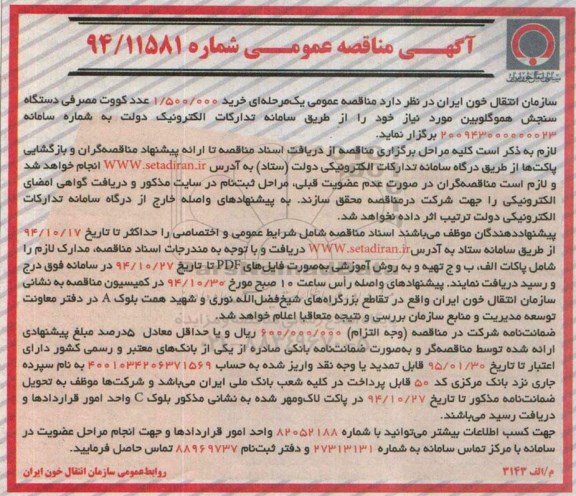 آگهی مناقصه عمومی شماره ۹۴/۱۱۵۸۱
سازمان انتقال خون ایران در نظر دارد مناقصه عمومی یک‌مرحله‌ای خرید ۱/۵۰۰/۰۰۰ عدد کووت مصرفی دستگاه
سنجش هموگلوبین مورد نیاز خود را از طریق سامانه تدارکات الکترونیک دولت به شماره سامانه
۲۰۰۹۴۳۰۰۰۰۰۰۰۲۳ برگزار نماید.
لازم به ذکر است کلیه مراحل برگزاری مناقصه از دریافت اسناد مناقصه تا ارائه پیشنهاد مناقصه‌گران و بازگشایی
پاکت‌ها از طریق درگاه سامانه تدارکات الکترونیکی دولت (ستاد) به آدرس WWW.setadiran.ir انجام خواهد شد
و لازم است مناقصه‌گران در صورت عدم عضویت قبلی، مراحل ثبت‌نام در سایت مذکور و دریافت گواهی امضای
الکترونیکی را جهت شرکت درمناقصه محقق سازند. به پیشنهادهای واصله خارج از درگاه سامانه تدارکات
الکترونیکی دولت ترتیب اثر داده نخواهد شد.
پیشنهاددهندگان موظف می‌باشند اسناد مناقصه شامل شرایط عمومی و اختصاصی را حداکثر تا تاریخ ۹۴/۱۰/۱۷
از طریق سامانه ستاد به آدرس WWW.setadiran.ir دریافت و با توجه به مندرجات اسناد مناقصه، مدارک لازم را
شامل پاکات الف، ب و ج تهیه و به روش آموزشی به‌صورت فایل‌های PDF تا تاریخ ۹۴/۱۰/۲۷ در سامانه فوق درج
و رسید دریافت نمایند. پیشنهادهای واصله رأس ساعت ۱۰ صبح مورخ ۹۴/۱۰/۳۰ در کمیسیون مناقصه به نشانی
سازمان انتقال خون ایران واقع در تقاطع بزرگراه‌های شیخ‌فضل‌الله نوری و شهید همت بلوک A در دفتر معاونت
توسعه مدیریت و منابع سازمان بررسی و نتیجه متعاقبا اعلام خواهد شد.
ضمانت‌نامه شرکت در مناقصه (وجه التزام) ۶۰۰/۰۰۰/۰۰۰ ریال و یا حداقل معادل ۵درصد مبلغ پیشنهادی
ارائه شده توسط مناقصه‌گر و به‌صورت ضمانت‌نامه بانکی صادره از یکی از بانک‌های معتبر و رسمی کشور دارای
اعتبار تا تاریخ ۹۵/۰۱/۳۰ قابل تمدید یا وجه نقد واریز شده به حساب ۴۰۰۱۰۳۴۲۰۶۳۷۱۵۶۹ به نام سپرده
جاری نزد بانک مرکزی کد ۵۰ قابل پرداخت در کلیه شعب بانک ملی ایران می‌باشد و شرکت‌ها موظف به تحویل
ضمانت‌نامه مذکور تا تاریخ ۹۴/۱۰/۲۷ در پاکت لاک‌ومهر شده به نشانی مذکور بلوک C واحد امور قراردادها و
دریافت رسید می‌باشند.
جهت کسب اطلاعات بیشتر می‌توانید با شماره ۸۲۰۵۲۱۸۸ واحد امور قراردادها و جهت انجام مراحل عضویت در
سامانه با مرکز تماس سامانه به شماره ۲۷۳۱۳۱۳۱ و دفتر ثبت‌نام ۸۸۹۶۹۷۳۷ تماس حاصل فرمایید.
م/الف ۳۱۴۳
روابط‌عمومی سازمان انتقال خون ایران